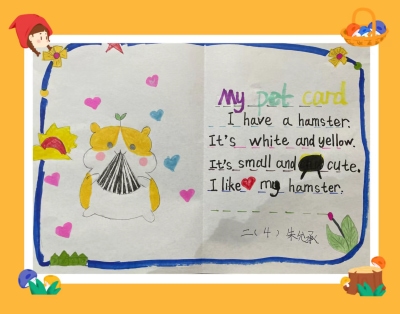 My pet card
I have a hamster.
It's white and yellow.
It's small and cute.
I like my hamster.
二(4) 朱